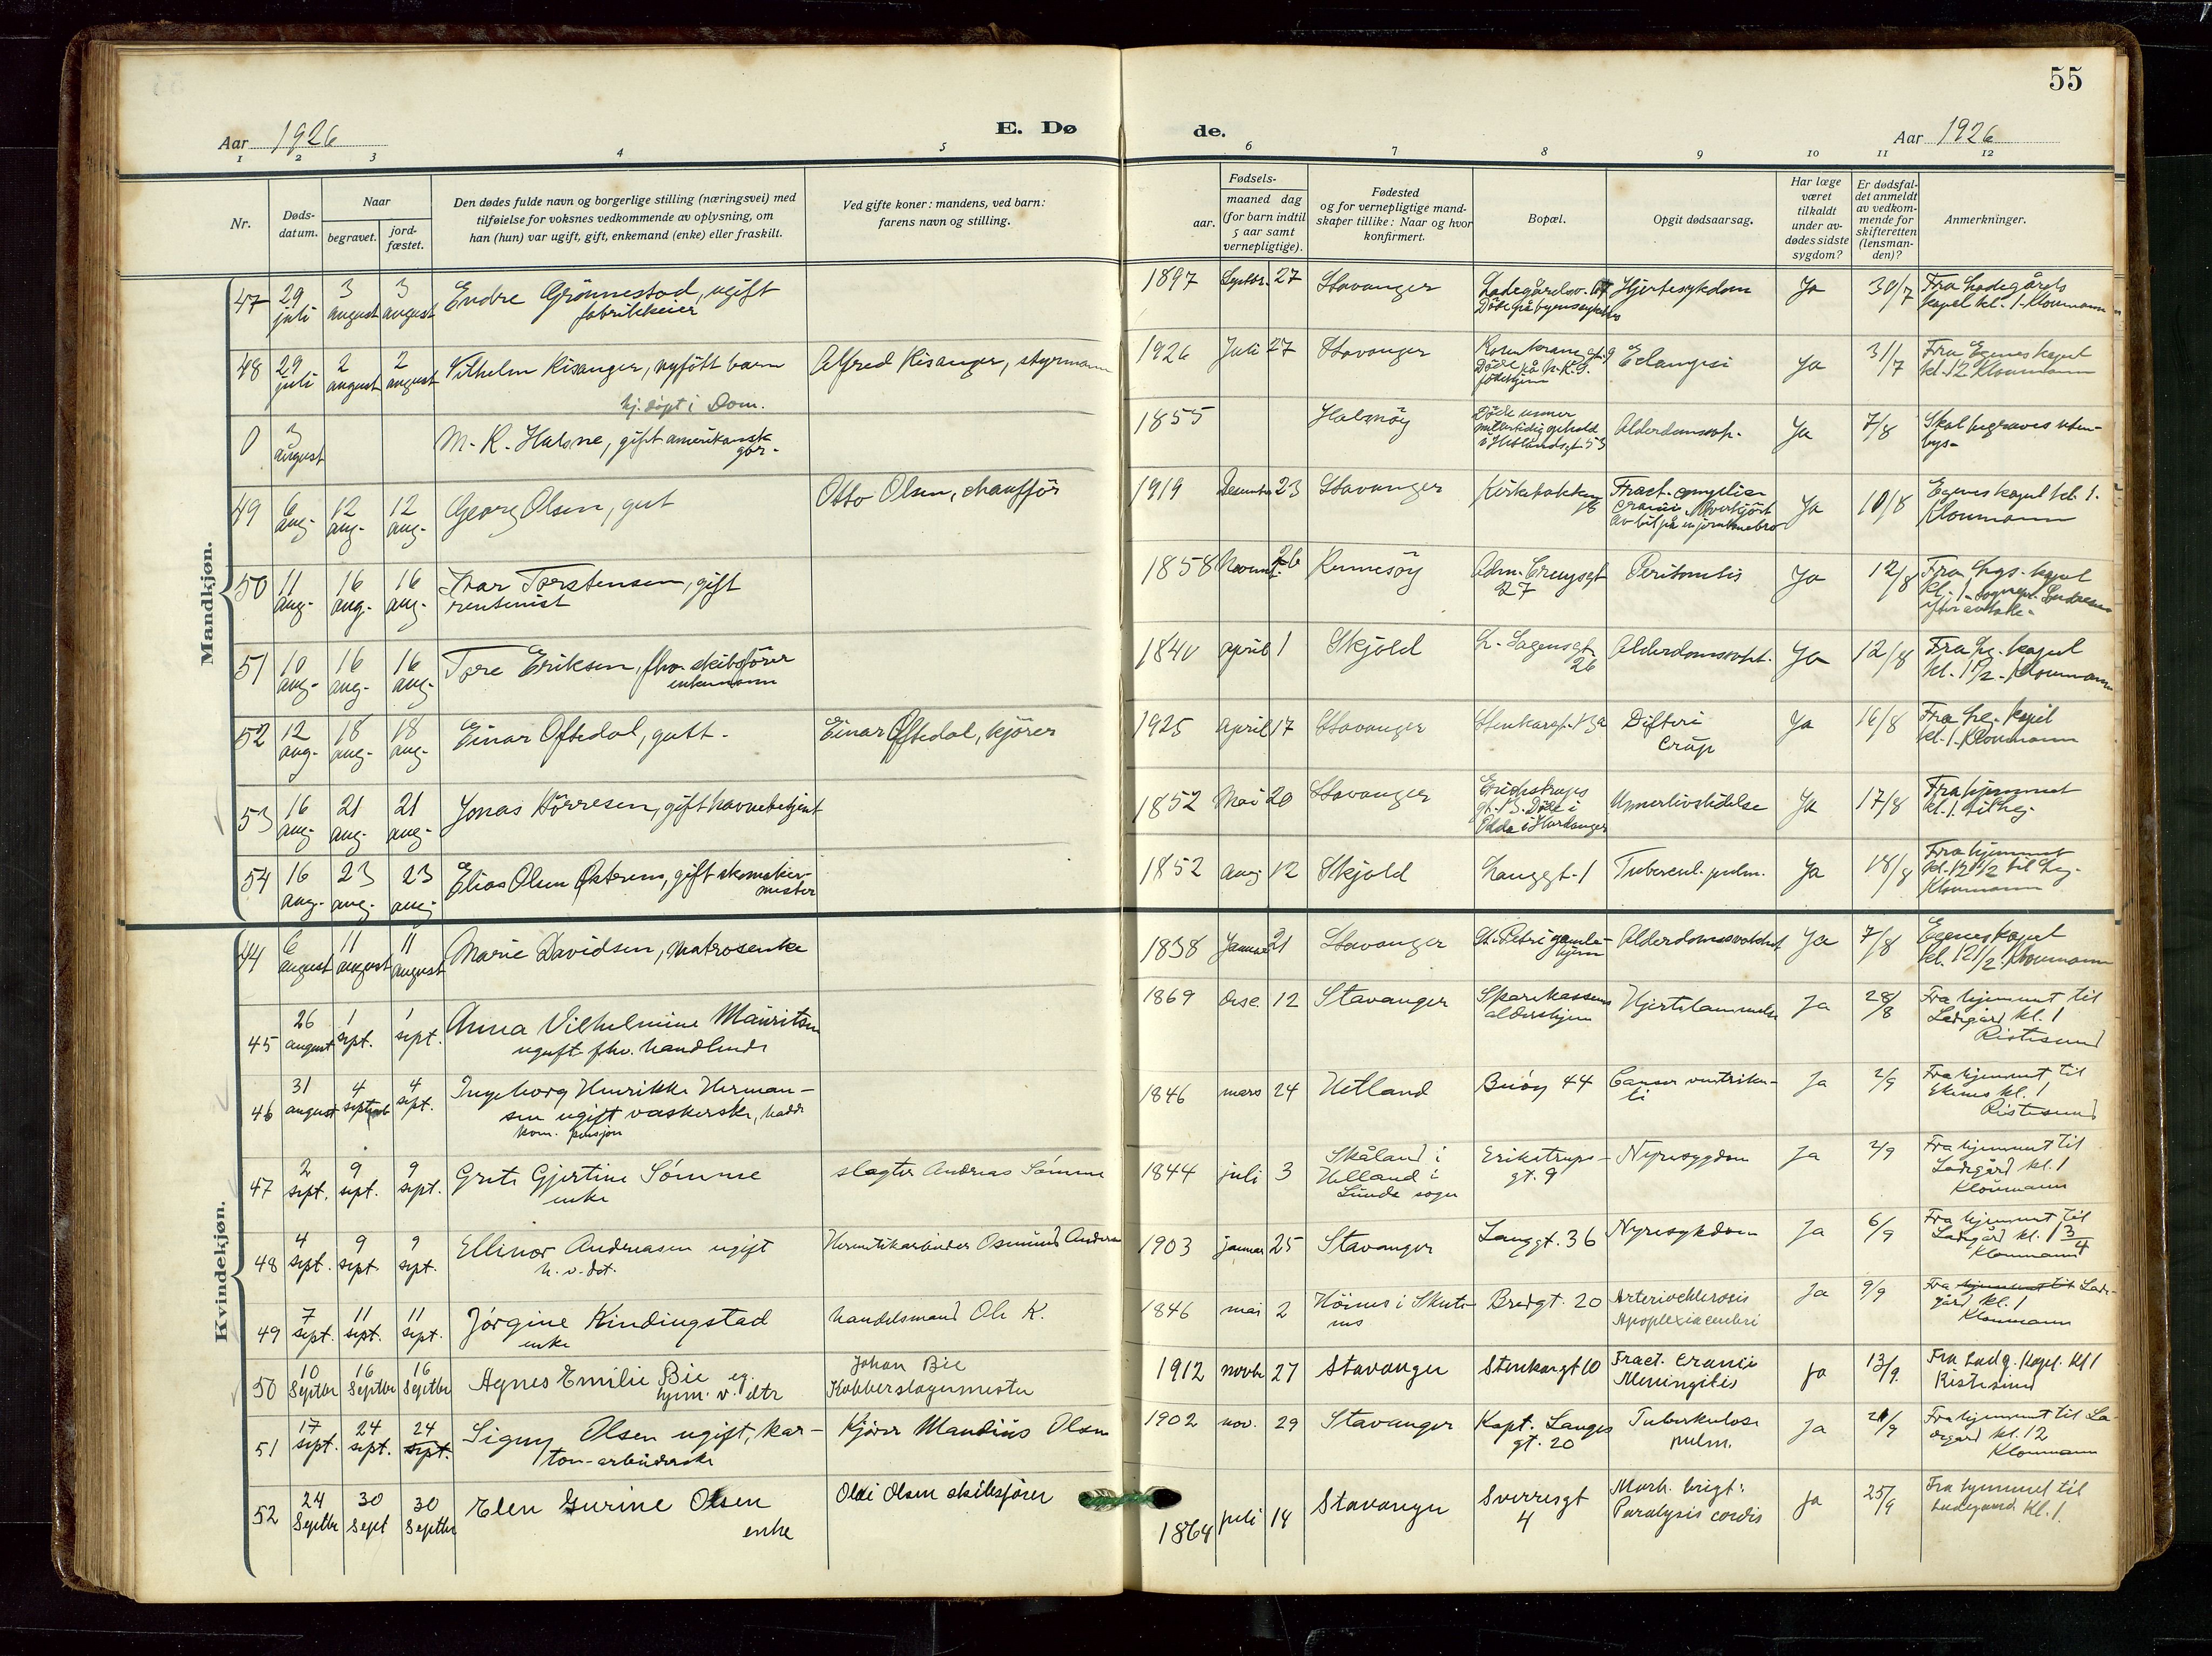 55
Aar 1926
E. Dø
de.
Aar 1926
1 2 3 4 5 6 7 8 9 10 11 12
Nr.
Døds-
datum.
Naar
begravet.
jord-
fæstet.
Den dødes fulde navn og borgerlige stilling (næringsvei) med
tilføielse for voksnes vedkommende av oplysning, om
han (hun) var ugift, gift, enkemand (enke) eller fraskilt.
Ved gifte koner: mandens, ved barn:
farens navn og stilling.
Fødsels-
aar.
maaned dag
(for barn indtil
5 aar samt
vernepligtige).
Fødested
og for vernepligtige mand-
skaper tillike: Naar og hvor
konfirmert.
Bopæl.
Opgit dødsaarsag.
Har læge
været
tilkaldt
under av-
dødes sidste
sygdom?
Er dødsfal-
det anmeldt
av vedkom-
mende for
skifteretten
(lensman-
den)?
Anmerkninger.
Mandkjøn.
47 29 juli 3 august 3 august Endre Grönnestad, ugift
fabrikkeier
1897 Septbr. 27 Stavanger Ladegårdsv.
Döde på byens sykehus
Hjertesykdom Ja 30/7 Fra Ladegårds
kapel kl. 1. Kloumann
48 29 juli 2 august 2 august Vilhelm Kisanger, nyfött barn
hj. döpt i Dom.
Alfred Kisanger, styrmann
1926 Juli 27 Stavanger Rosenkransgt. 9
Döde på N.K.S.
födehjem
Eclampsi Ja 31/7 Fra Egenes kapel
kl. 12 Kloumann
0 3 august M. K. Halsne, gift amerikansk
går.
1855 Halsnöy Döde under
midlertidig ophold
i Hetlandsgt. 53
Alderdomssv. Ja 7/8 Skal begraves uten-
bys.
49 6 aug. 12 aug. 12 aug. Georg Olsen, gut Otto Olsen, chaufför
1919 Decembr 23 Stavanger Kirkebakken
16
Fract. complic.
cranii. Overkjört
av bil på en jernbanebro
Ja 10/8 Egenes kapel kl. 1.
Kloumann
50 11 aug. 16 aug. 16 aug. Ivar Torstensen, gift
rentenist
1858 Novemb. 26 Rennesöy Adm. Cruysgt
27
Peritonitis Ja 12/8 Fra Lgs. kapel
kl. 1. Sognepr.
efter avtale.
51 10 aug. 16 aug. 16 aug. Tore Eriksen, fhv. skibsförer
enkemann
1840 april 1 Skjold L. Sagensgt.
26
Alderdomssvekk. Ja 12/8 Fra Lg. kapel
kl. 1 1/2. Kloumann
52 12 aug. 18 aug. 18 aug. Einar Oftedal, gutt. Einar Oftedal, kjörer
1925 april 17 Stavanger Stenkargt. 13a Difteri
Crup
Ja 16/8 Fra Lg. kapel
kl. 1. Kloumann
53 16 aug. 21 aug. 21 aug. Jonas Törresen, gift havnebetjent
1852 Mai 20 Stavanger Erichstrups
gt. 13. Döde i
Odda i Hardanger
Underlivslidelse Ja 17/8 Fra hjemmet
kl. 1. til Lg.
54 16 aug. 23 aug. 23 aug. Elias Olsen Østrem, gift skomaker-
mester
1852 aug 12 Skjold Langgt. 1 Tubercul. pulm. Ja 18/8 Fra hjemmet
kl. 12 1/2 til Lg.
Kloumann
Kvindekjøn.
44 6 august 11 august 11 august Marie Davidsen, matrosenke
1838 Januar 21 Stavanger St. Petri gamle-
hjem
Alderdomssvakhet Ja 7/8 Egenes kapel
kl. 12 1/2. Kloumann
45 26 august 1 sept. 1 sept. Anna Vilhelmine Mauritsen
ugift fhv. handlende
1869 dec. 12 Stavanger Sparekassens
aldershjem
Hjertelammelse Ja 28/8 Fra hjemmet til
Ladegård kl. 1
Ristesund
46 31 august 4 septemb 4 sept. Ingeborg Henrikke Herman-
sen ugift vaskerske, hadde
kom. pensjon
1846 mars 24 Hetland Buöy 44 Cancer ventriku-
li
Ja 2/9 Fra hjemmet til
Ekenes kl. 1
Ristesund
47 2 sept. 9 sept. 9 sept. Grete Gjertine Sömme
enke
slagter Andreas Sömme
1844 juli 3 Skåland i
Helland i
Lunde sogn
Erikstrups-
gt. 9
Nyresygdom Ja 2/9 Fra hjemmet til
Ladegård kl. 1
Kloumann
48 4 sept. 9 sept. 9 sept. Ellinor Andreasen ugift
h. v. dat.
Hermetikarbeider Osmund Andreasen
1903 januar 25 Stavanger Langgt. 36 Nyresykdom Ja 6/9 Fra hjemmet til
Ladegård kl. 1 3/4
Kloumann
49 7 sept. 11 sept. 11 sept. Jörgine Kindingstad
enke
handelsmand Ole K.
1846 mai 2 Hönes i Skute-
nes
Bredgt. 20 Arteriosclerosis
Apoplexia cerebri
Ja 9/9 Fra hjemmet til Lade-
gård kl. 1
Kloumann
50 10 Septbr 16 Septbr 16 Septbr Agnes Emilie Bie ug.
hjem. v. dtr
Johan Bie
Kobberslagermester
1912 novbr 27 Stavanger Stenkargt 10 Fract. cranii
Meningitis
Ja 13/9. Fra Ladg. Kapel. Kl 1
Ristesund
51 17 sept. 24 sept. 24 sept. Signy Olsen ugift, kar-
ton-arbeiderske
Kjörer Maudius Olsen
1902 nov. 29 Stavanger Kapt. Langes
gt. 20
Tuberkulose
pulm.
Ja 21/9 Fra hjemmet til La-
degård kl. 12
Kloumann
52 24 Septbr 30 Sept 30 Septbr Elen Gurine Olsen
enke
Olai Olsen skibsfører
1864 juli 14 Stavanger Sverresgt
4
Morb. brigt:
Paralysis cordis
Ja 25/9 Fra hjemmet til
Ladegaard Kl. 1.